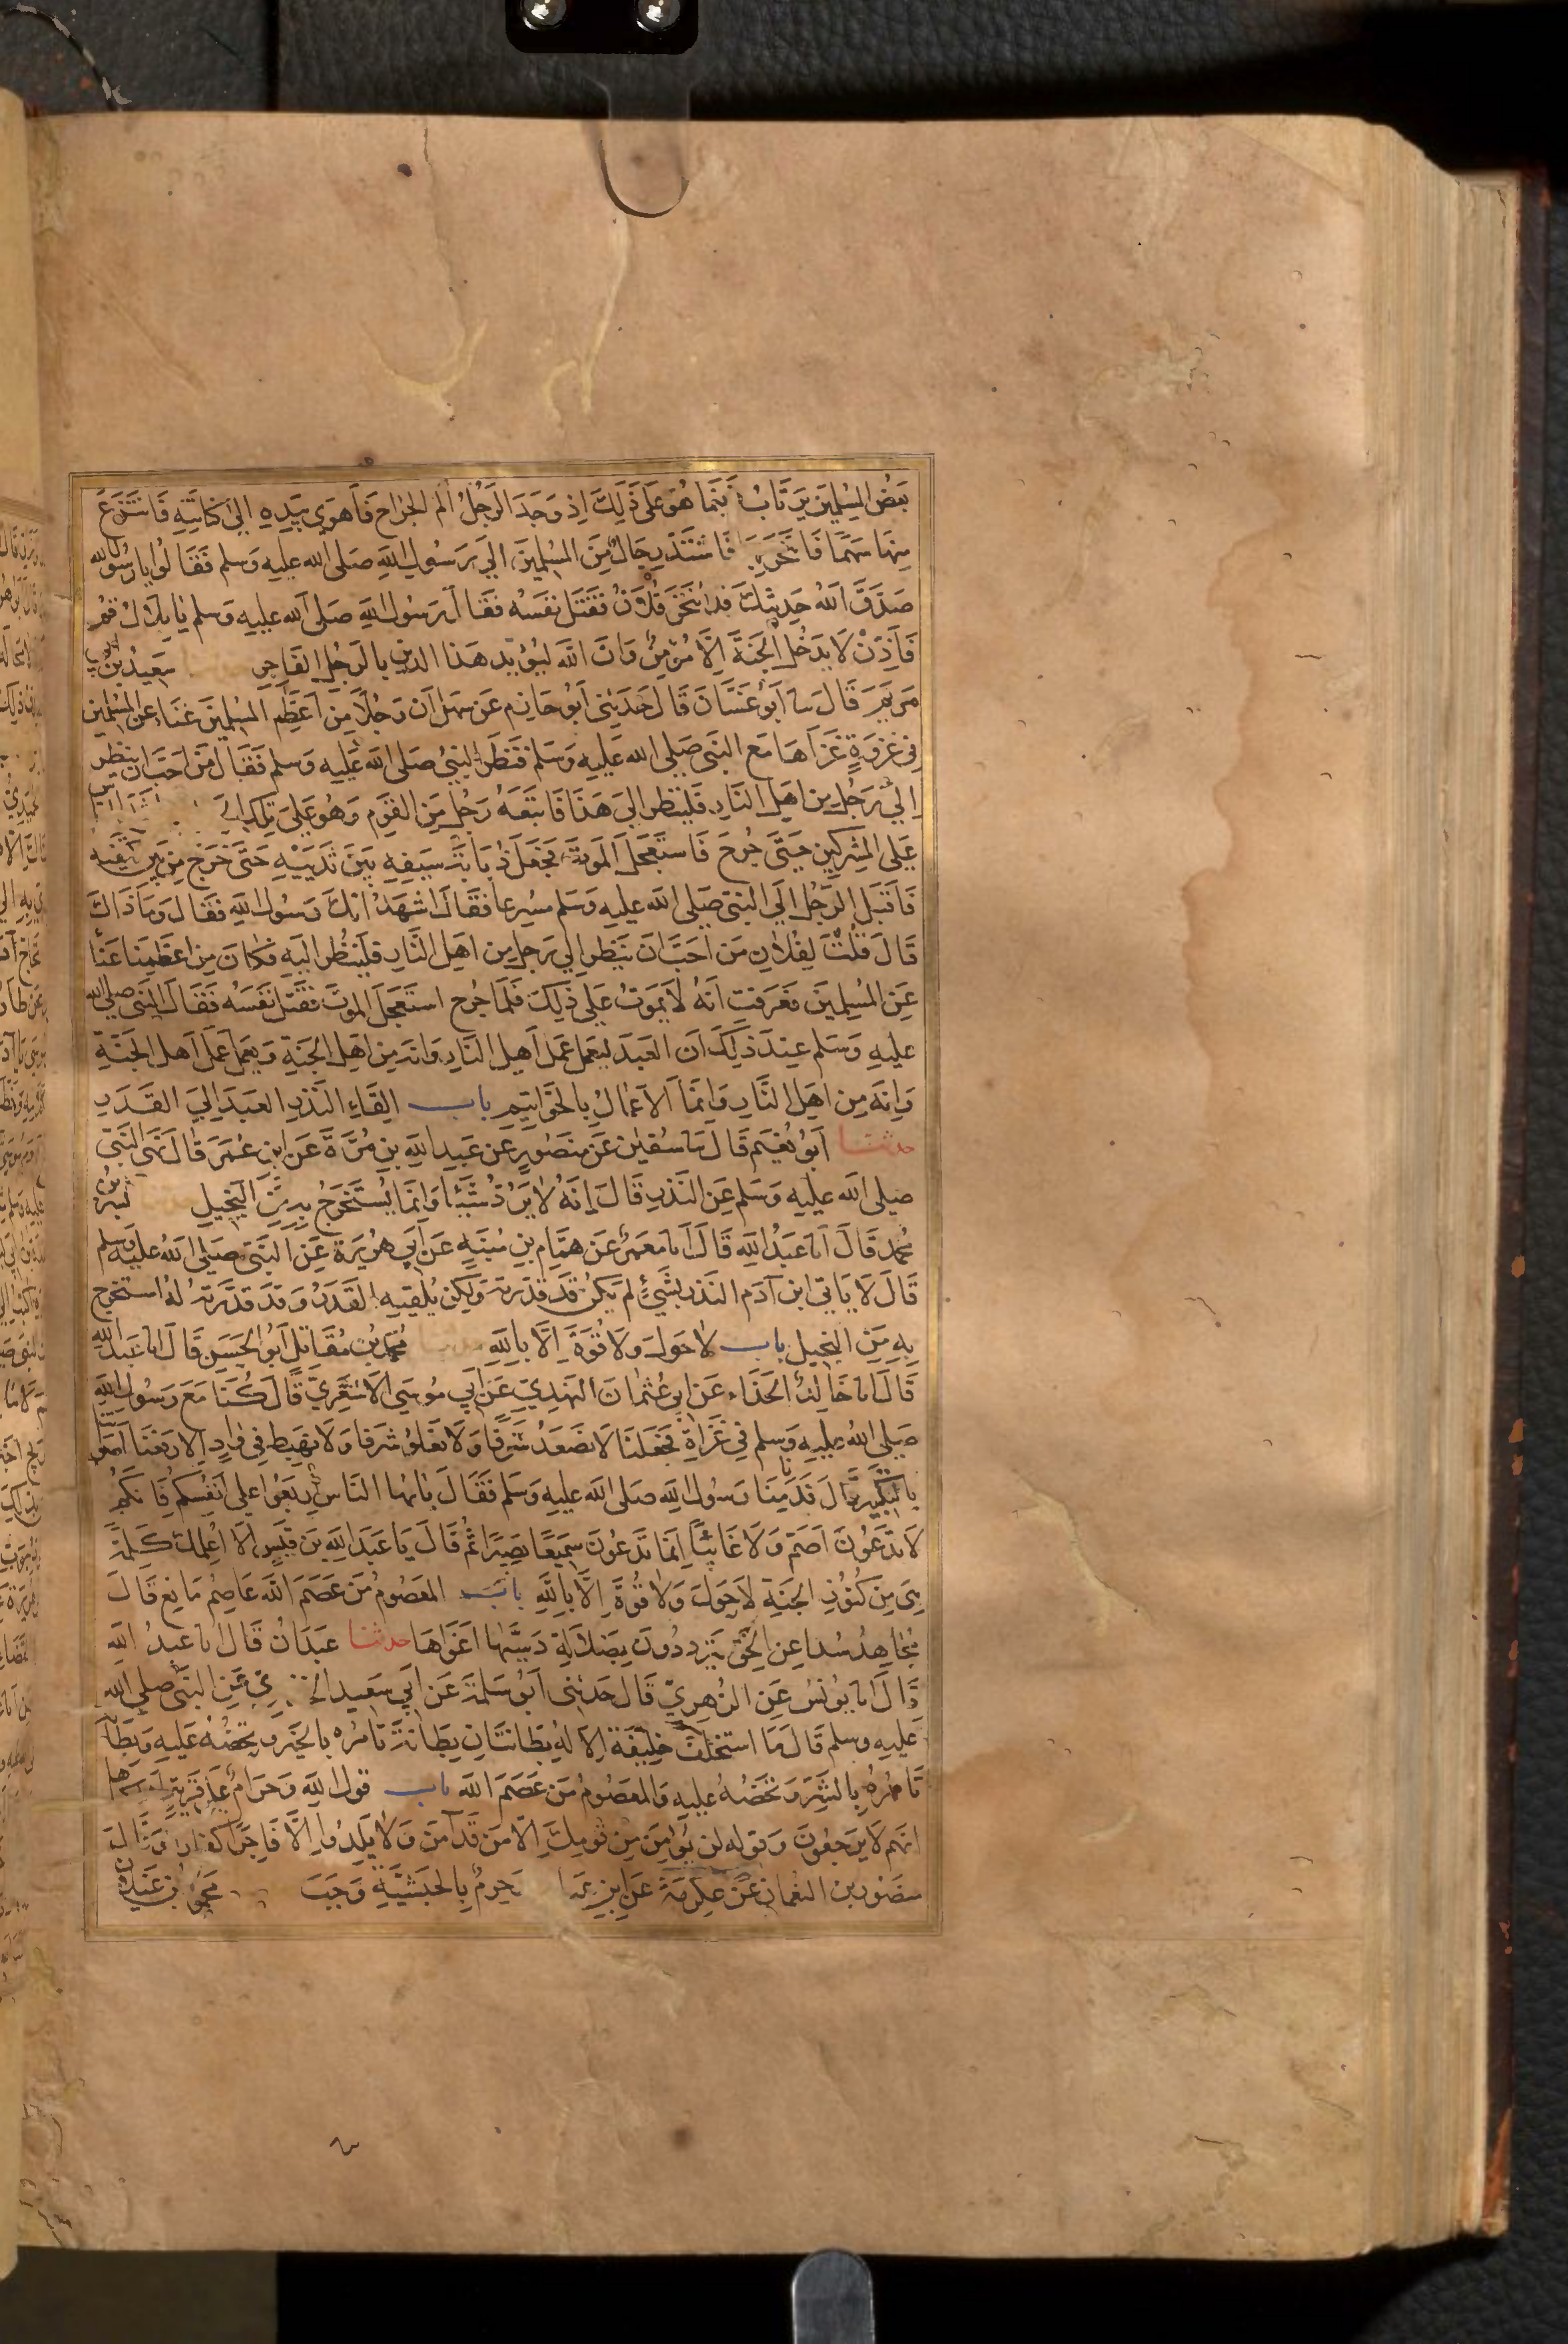 بَعْضُ المُسْلِمِينَ يَرْتَابُ فَبَيْنَمَا هُوَ عَلَى ذَلِكَ اِذ وَجَدَ الرَّجُلُ اَلَمَ الجِرَاحِ فَاَهْوَى بِيَدِهِ اِلَى كِنَانَتِهِ فَانْتَزَعَ
مِنْهَا سَهْمًا فَانْتَحَرَ بِهَا فَاشْتَدَّ رِجَالٌ مِنَ المُسْلِمِينَ اِلَى رَسُولِ اللهِ صَلى الله عليه وَسلم فَقَالُوا يَا رَسُولَ الله
صَدَّقَ اللهُ حَدِيثَكَ قد انْتَحَرَ فُلَانٌ فَقَتَلَ نَفْسَهُ فَقَالَ رَسُولُ اللهِ صَلى الله عليه وَسلم يَا بِلَالُ قُمْ
فَاَذِّنْ لَا يَدْخُلُ الْجَنَّةَ اِلَّا مُؤمِنٌ وَانَّ اللهَ لَيُؤَيِّدُ هَذَا الدِّينَ بِالرَّجُلِ الفَاجِرِ سَعِيدُ بْنُ ابي
مَرْيَمَ قَالَ نا اَبُو غَسَّانَ قَالَ حَدَثَنِى اَبُو حَازِمٍ عَن سَهْلٍ اَن رَجُلًا مِنْ اَعْظَمِ المُسْلِمِينَ غَنَاءً عَنِ المُسْلِمِينَ
فِى غَزْوَةٍ غَزَاهَا مَعَ النَّبِىِّ صَلى الله عَلَيهِ وَسَلم فَنَظَرَ النَّبِىُّ صَلى الله عَلَيهِ وَسلم فَقَالَ مَنْ اَحَبَّ ان يَنْظُرَ
اِلَى رَجُلٍ مِن اَهْلِ النَّارِ فَليَنْظُر اِلَى هَذَا فَاتَّبَعَهُ رَجُلٌ مِنَ القَوْمِ وَهُوَ عَلَى تِلْكَ
عَلَى المُشْرِكِينَ حَتَّى جُرِحَ فَاسْتَعْجَلَ المَوْتَ فَجَعَلَ ذُبَابَةَ سَيفِهِ بَيْنَ ثَدْيَيْهِ حَتَّى خَرَجَ مِن بَيْنِ كتفيه
فَاَقْبَلَ الرَّجُلُ اِلَى النَّبِىِّ صَلى الله عليه وَسَلم مُسْرِعًا فَقَالَ اشْهَدُ انَّكَ رَسُولُ اللهِ فَقَالَ وَمَا ذَاكَ
قَالَ قُلْتَ لِفُلَانٍ مَن احَبَّ انَ يَنْظُر اِلى رَجلٍ مِن اهْلِ النَّارِ فليَنْظُر الَيهِ فكَانَ مِن اعْظَمِنَا غَنَاً
عَنِ المُسْلِمِينَ فَعَرَفْتُ اَنَّهُ لَا يَمُوتُ عَلَى ذَلِكَ فَلَمَّا جُرِحَ استَعْجَلَ المَوْتَ فَقَتَلَ نَفْسَهُ فَقَالَ النَّبِىُّ صلى الله
عليهِ وَسَلم عِنْدَ ذَلِكَ اَن العَبْدَ لَيَعْمَلُ عَمَلَ اَهْلِ النَّارِ وَانه مِن اهْلِ الجَنَةِ وَيعْمَلُ عَمَلَ اَهْلِ الجَنَّةِ
وَانَّه مِن اَهْلِ النَّارِ وَاِنَّمَا اَلاعْمَالُ بِالخَوَاتِيمِ باب القَاءِ النَّذْرِ العَبْدَ اِلَى القَدَرِ
حدثنا اَبُو نُعَيْمٍ قَالَ نا سُفْيَن عَن مَنْصُورٍ عَن عَبدِ اللهِ بْنِ مُرَّةَ عَن ابْنِ عُمَرَ قَالَ نَهَى النَّبِىُّ
صَلى الله عليه وَسَلم عَنِ النَّذْرِ قَالَ اِنَّهُ لَا يَرُدُّ شَيْئًا وَاِنَّمَا يُسْتَخْرَجُ بِهِ مِنَ البَخِيلِ بِشْرُ بن
مُحمدٍ قَالَ انا عَبْدُ اللهِ قَالَ انا مَعْمَرٌ عَن هَمَّامِ بنِ مُنَبِّهٍ عَن اَبِي هُرَيْرَةَ عَن النَّبِىِّ صلى الله عليه وسلم
قَالَ لَا يَاتِى ابْنَ آدَمَ النَّذْرُ بِشَىْءٍ لَمْ يَكُنْ قَدْ قَدَّرْتُهُ وَلَكِن يُلقِيهِ القَدَرُ وَقَدْ قَدَّرْتُهُ لَهُ استَخْرِجُ
بِهِ مِنَ البَخِيلِ باب لَا حَولَ وَلَا قُوَةَ اِلَّا بِاللهِ مُحَمَّدُ بْنُ مُقَاتِلٍ اَبُو الحَسَنِ قَالَ انا عَبْدُ الله
قَالَ انا خَالِدٌ الحَذَّاء عَن ابِى عُثْمَانَ النَّهْدِىِّ عَن اَبِي مُوسَى الاشْعَرِىِّ قَالَ كُنَّا مَعَ رَسُولِ اللهِ
صَلى الله عليه وَسلم فِى غَزَاةٍ فَجَعَلْنَا لَا نَصْعَدُ شَرَفًا وَلَا نَعْلُو شَرَفا وَلَا نَهْبِطُ فِى وَادٍ اِلا رَفَعْنَا اصواتنا
بِالتَّكْبِيرِ قَالَ فَدَنَا مِنَّا رَسُولُ اللهِ صَلى الله عليه وَسَلم فَقَالَ يَا اَيُّهَا النَّاسُ ارْبَعُوا عَلَى اَنْفُسِكُمْ فَانَّكُمْ
لَا تَدْعُونَ اَصَمَّ وَلَا غَائِبًا اِنَّمَا تَدعُونَ سَمِيعًا بَصِيرًا ثُمَّ قَالَ يَا عَبْدَ اللهِ بنَ قَيْسٍ الَا اُعَلِّمُكَ كَلِمَةً
هِىَ مِن كُنُوزِ الجَنَةِ لَا حَوْلَ وَلَا قُوَّةَ اِلَّا بِاللهِ باب المَعْصُومُ مَن عَصَمَ اللهُ عَاصِمٌ مَانِعٌ قَالَ
مُجَاهِدٌ سُدا عَنِ الحَقِّ يَتَرَدَدُونَ فِى ضَلَالَةٍ دَسَّاهَا اغْوَاهَا حدثنا عَبْدَانُ قَالَ انا عَبدُ اللهِ
قَالَ انا يُونُسُ عَنِ الزُّهْرِىِّ قَالَ حَدَثَنِى اَبُو سَلَمَةَ عَن اَبِي سَعِيدٍ الخدرىِّ عَنِ النَّبِىِّ صلى الله
عَليهِ وسلم قَالَ مَا استُخْلِفَ خَلِيفَة اِلَّا لَهُ بِطَانَتَانِ بِطَانَةٌ تَامُرُه بِالخَيْرِ وَتَحُضُّهُ عَليه وَبِطَانة
تَامُرُهُ بِالشَرِّ وَتَحُضُّهُ عليهِ وَالمَعصُومُ مَن عَصَمَ اللهُ باب قول الله وَحَرَامٌ عَلَى قَرْيَةٍ اهلكناها
انَّهم لَا يَرجِعُونَ وَقوله لن يُؤمِنَ مِن قومِكَ اِلَّا مَن قَدْ آمَنَ وَلَا يَلِدُوا اِلَّا فَاجِرًا كفارا وَقَالَ
مَنصُور بن النعمان عَن عِكْرِمَةَ عَنِ ابْنِ عَبا وَحِرْمٌ بِالحَبَشِيَّةِ وَجَبَ مَحمُودُ بن غَيلان